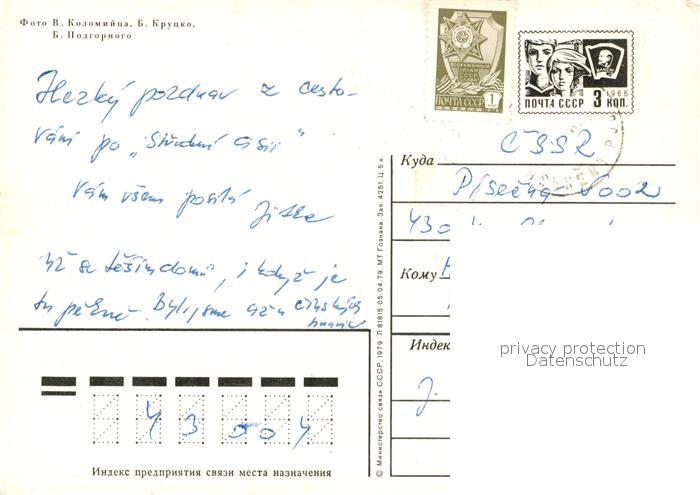 Фото В. Коломийца, Б. Круцко,
Б. Подгорного
Hezký pozdrav z cesto-
vání po "Střední Asii"
Vám všem posílá
Jitka
už se těším domů, i když je
tu pěkně. Byli jsme až u čínských
hranic
ПОЧТА СССР 1
1966
ПОЧТА СССР 3 коп.
ВЛКСМ
Куда
ČSSR
Písečná 5002
430
Кому
Индекс
J.
privacy protection
Datenschutz
43004
Индекс предприятия связи места назначения
© Министерство связи СССР, 1979 Л 81815 05.04.79. МТ Гознака. Зак. 4251. Ц. 5 к.